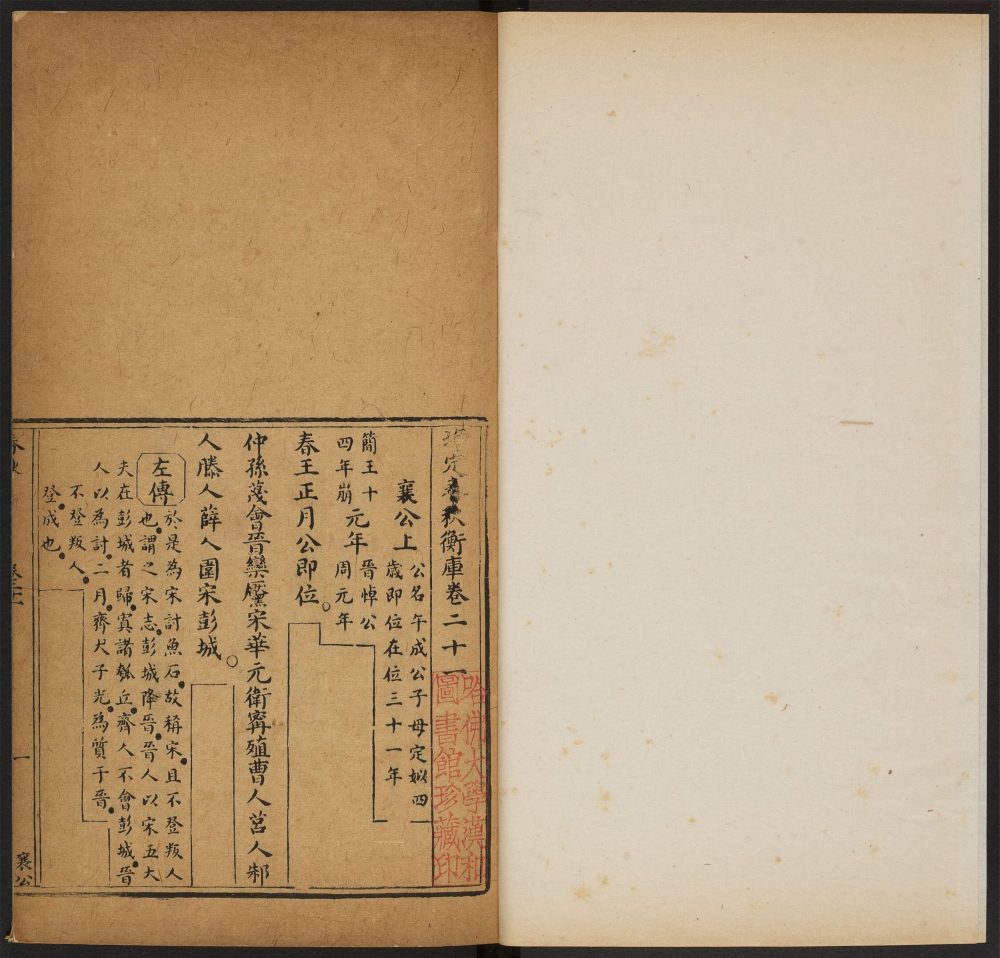 定春秋衡庫卷二十一
哈佛大學漢和
圖書館珍藏印
襄公上
公名午成公子母定姒四
歲即位在位三十一年
簡王十
四年崩
元年
晉悼公
周元年
春王正月公即位。
仲孫蔑會晉欒黶宋華元衛甯殖曹人莒人邾
人滕人薛人圍宋彭城。
左傳
於是為宋討魚石故稱宋且不登叛人
也謂之宋志彭城降晉晉人以宋五大
夫在彭城者歸寘諸瓠丘齊人不會彭城晉
人以為討二月齊大子光為質于晉
不登叛人
登成也
春秋
卷二十一
一
襄公